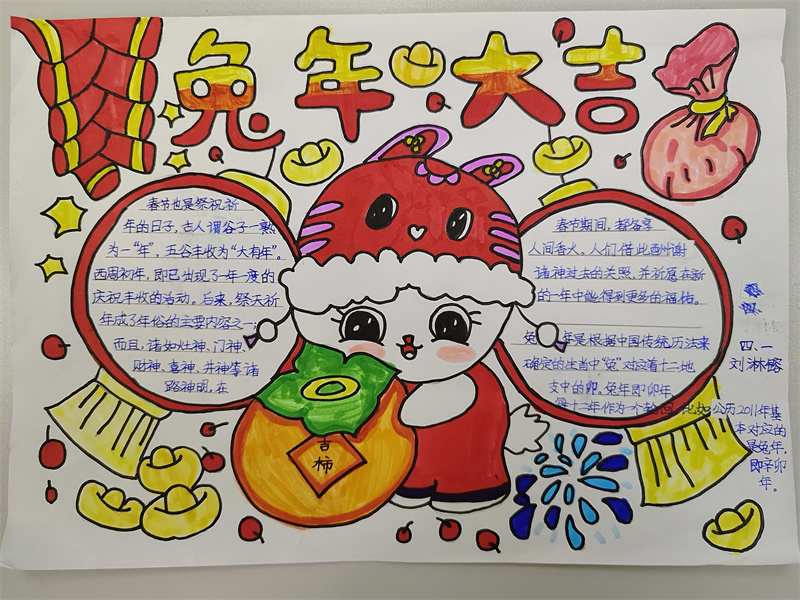 兔年大吉
春节也是祭祝祈
年的日子，古人谓谷子一熟
为一"年"，五谷丰收为"大有年"。
西周初年，即已出现了一年一度的
庆祝丰收的活动。后来，祭天祈
年成了年俗的主要内容之一；
而且，诸如灶神、门神、
财神、喜神、井神等诸
路神明，在
春节期间，都备享
人间香火。人们借此酬谢
诸神过去的关照，并祈愿在新
的一年中能得到更多的福佑。
兔年是根据中国传统历法来
确定的生肖中"兔"对应着十二地
支中的卯。兔年即卯年，
每十二年作为一个轮回，比如公历2011年基
本对应的
是兔年，
即辛卯
年。
四、一
刘淋镕
吉
柿